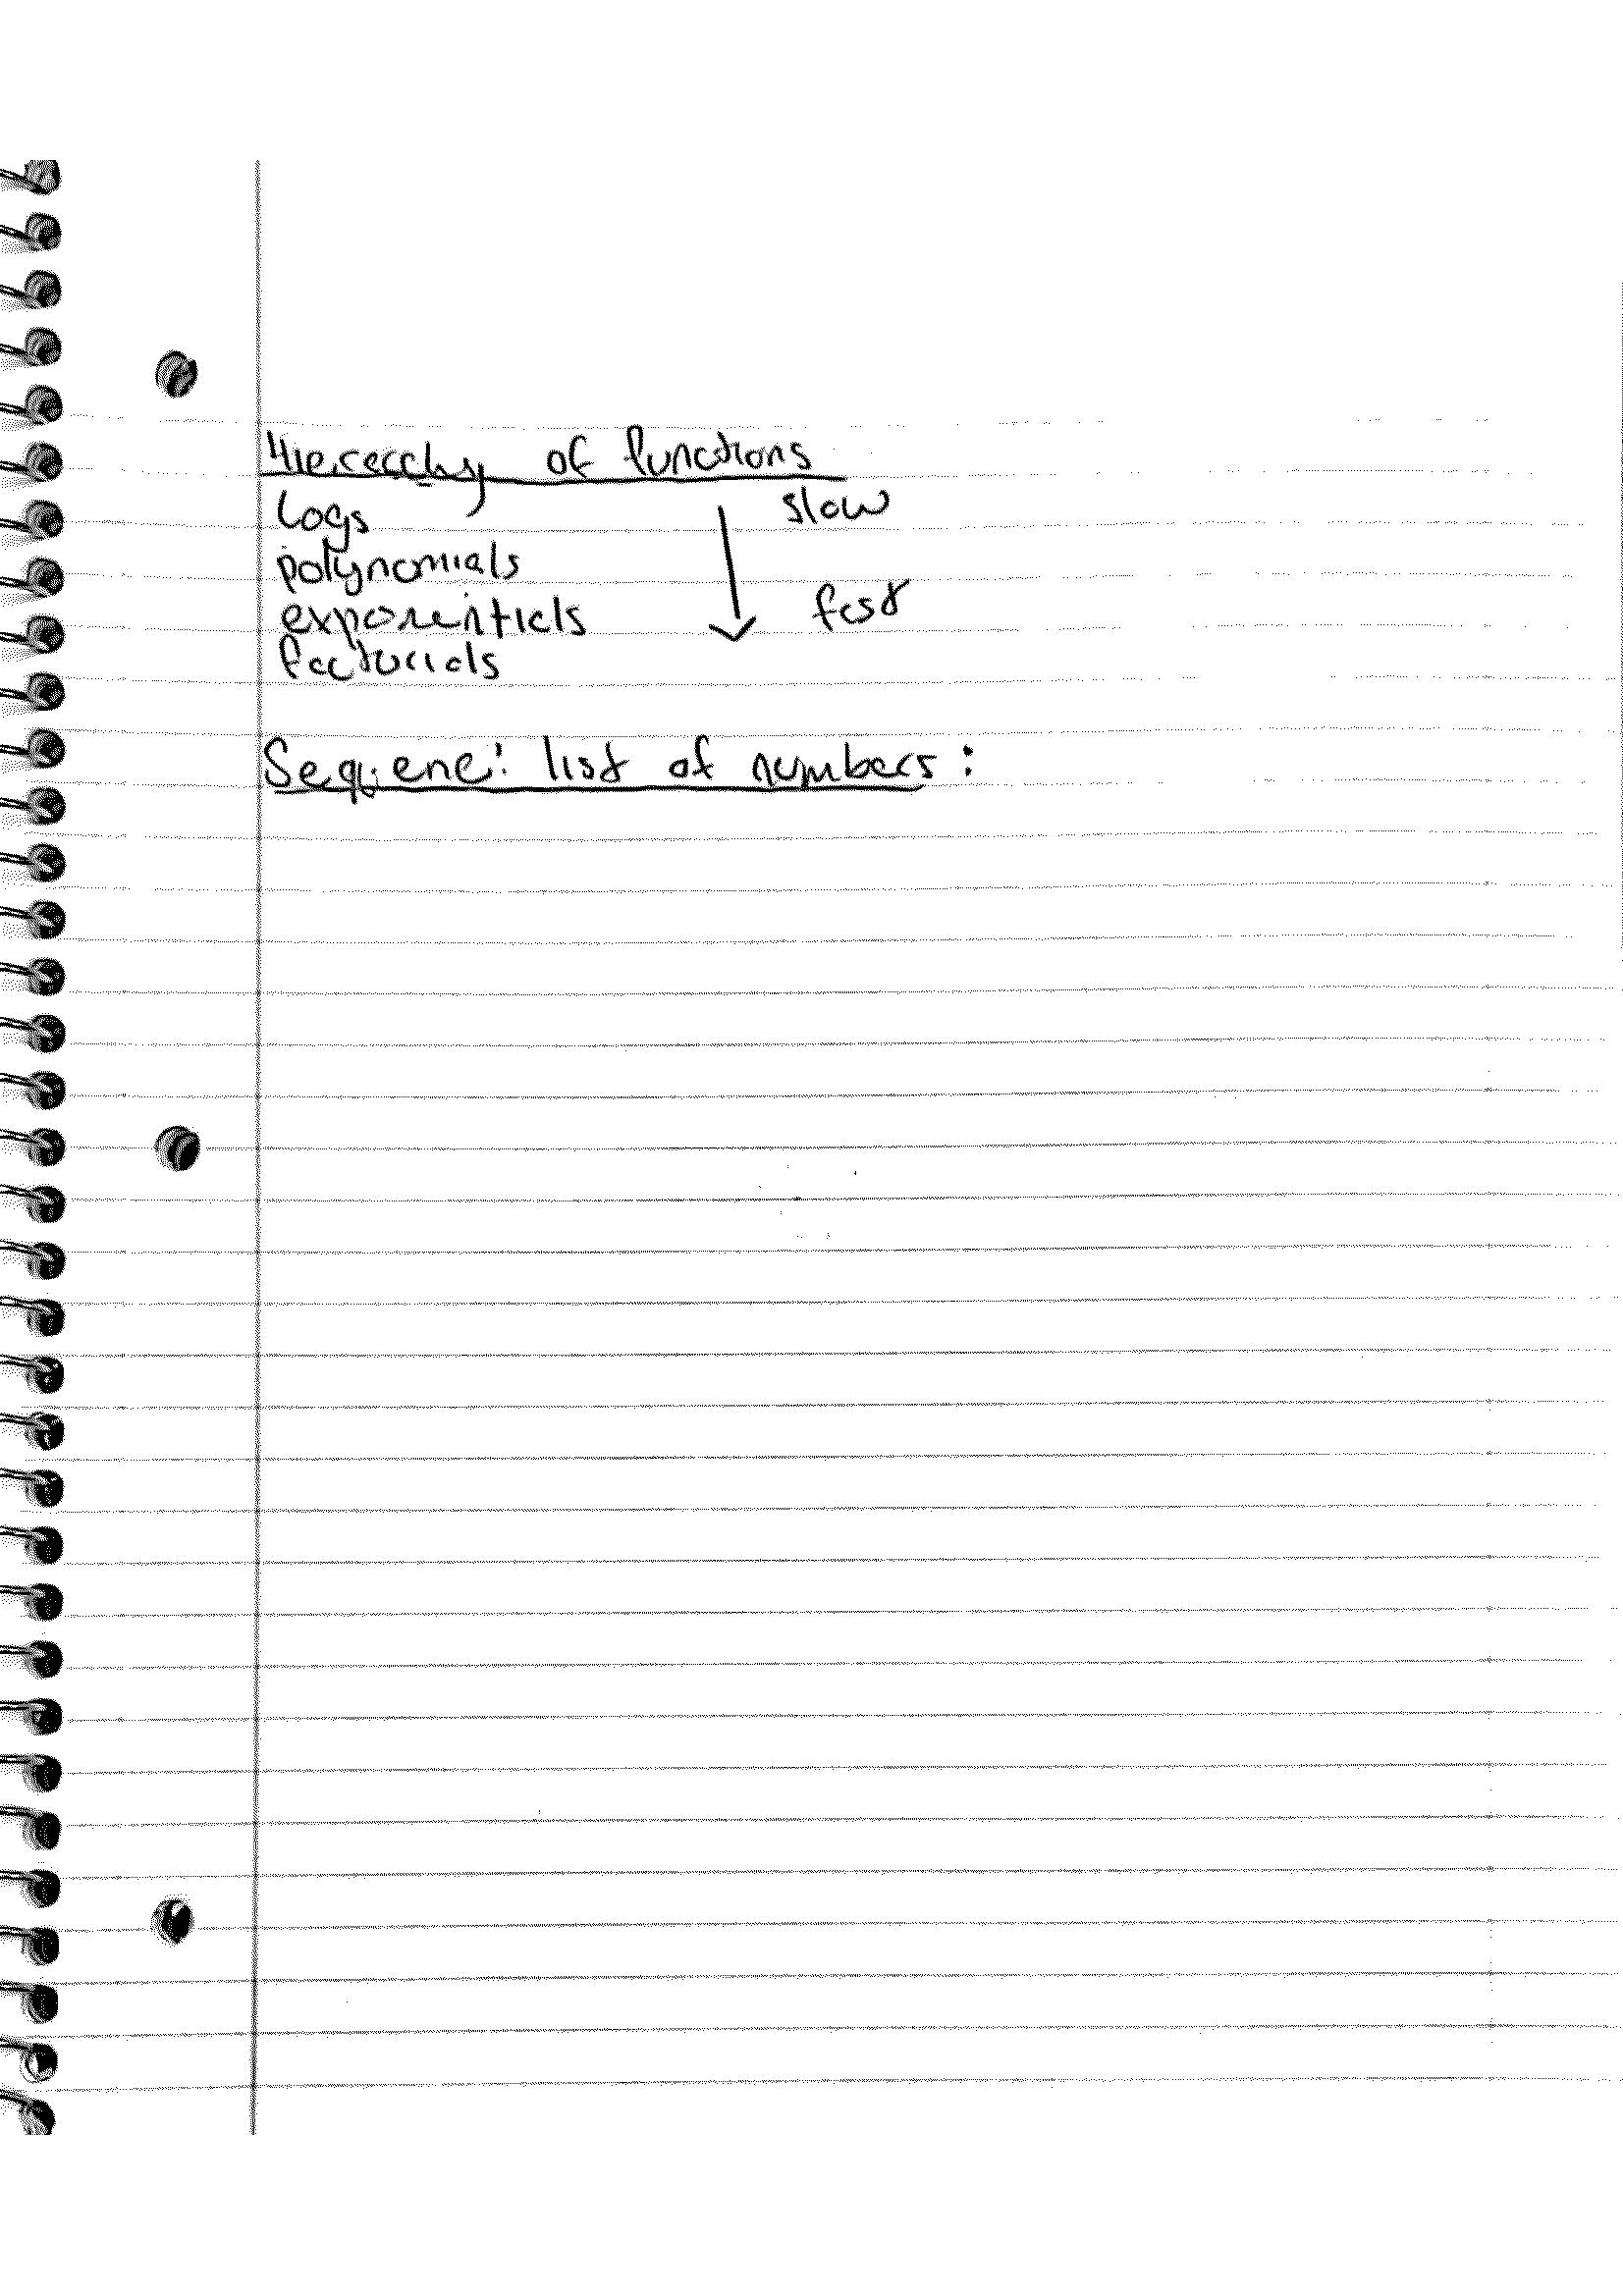 Hierarchy of functions
logs slow
polynomials
exponentials fast
factorials
Sequence: list of numbers: